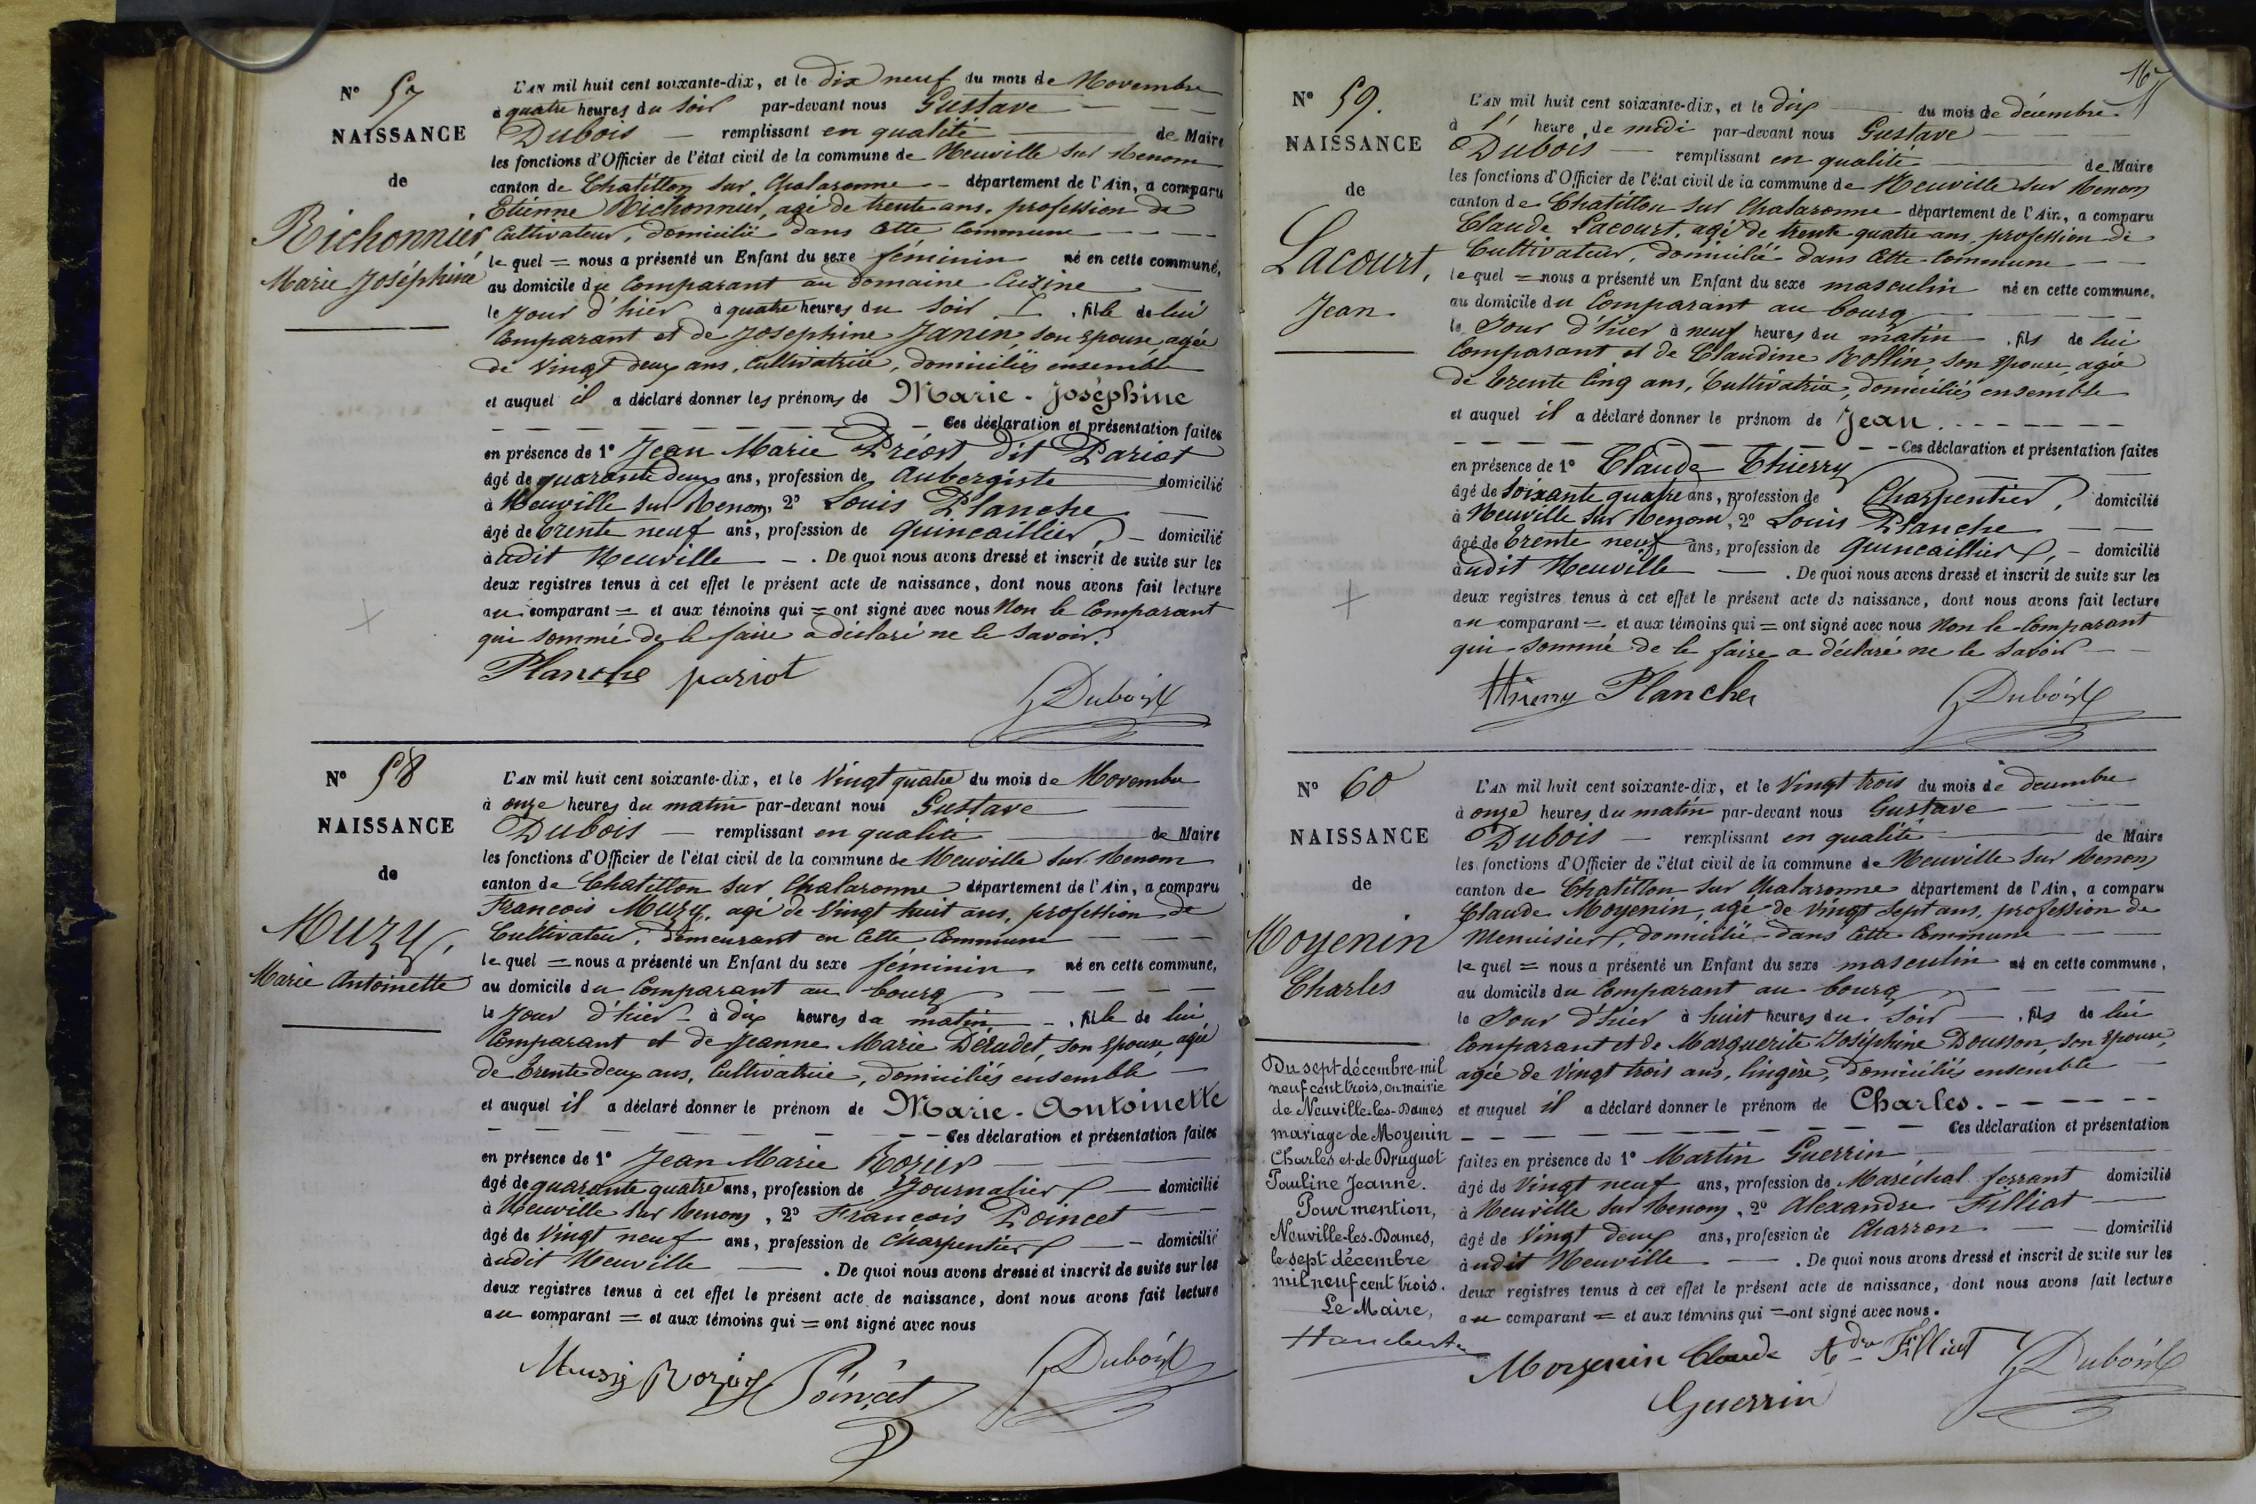 N° 57
NAISSANCE
de
Richonnier
Marie Joséphine
L'AN mil huit cent soixante-dix, et le dix neuf du mois de Novembre
à quatre heures du soir par-devant nous Gustave
Dubois — remplissant en qualité — de Maire
les fonctions d'Officier de l'état civil de la commune de Neuville sur Renom
canton de Chatillon sur Chalaronne — département de l'Ain, a comparu
Etienne Richonnier, agé de trente ans, profession de
Cultivateur, domicilié dans cette Commune
lequel = nous a présenté un Enfant du sexe féminin né en cette commune,
au domicile du Comparant au domaine Cuzine
le jour d'hier à quatre heures du soir, fille de lui
Comparant et de Josephine Janin, son épouse, agée
de vingt deux ans, cultivatrice, domiciliés ensemble
et auquel il a déclaré donner les prénoms de Marie-Joséphine
— Ces déclaration et présentation faites
en présence de 1° Jean Marie Préost, dit Pariot
âgé de quarante deux ans, profession de Aubergiste domicilié
à Neuville sur Renom, 2° Louis Planche
âgé de trente neuf ans, profession de quincaillier, — domicilié
à udit Neuville — . De quoi nous avons dressé et inscrit de suite sur les
deux registres tenus à cet effet le présent acte de naissance, dont nous avons fait lecture
au comparant = et aux témoins qui = ont signé avec nous Non le Comparant
qui sommé de le faire a déclaré ne le savoir.
Planche pariot
GDubois
N° 58
NAISSANCE
de
Muzy,
Marie Antoinette
L'AN mil huit cent soixante-dix, et le Vingt quatre du mois de Novembre
à onze heures du matin par-devant nous Gustave
Dubois — remplissant en qualité — de Maire
les fonctions d'Officier de l'état civil de la commune de Neuville sur Renom
canton de Chatillon sur Chalaronne département de l'Ain, a comparu
François Muzy, agé de vingt huit ans, profession de
Cultivateur, demeurant en cette Commune
lequel = nous a présenté un Enfant du sexe féminin né en cette commune,
au domicile du Comparant au bourg
le jour d'hier à dix heures du matin —, fille de lui
Comparant et de Jeanne Marie Dérudet, son épouse, agée
de trente deux ans, Cultivatrice, domiciliés ensemble —
et auquel il a déclaré donner le prénom de Marie-Antoinette
— Ces déclaration et présentation faites
en présence de 1° Jean Marie Rozier
âgé de quarante quatre ans, profession de Journalier — domicilié
à Neuville sur Renom, 2° François Poincet
âgé de Vingt neuf ans, profession de Charpentier — domicilié
à udit Neuville — . De quoi nous avons dressé et inscrit de suite sur les
deux registres tenus à cet effet le présent acte de naissance, dont nous avons fait lecture
au comparant = et aux témoins qui = ont signé avec nous
Muzy Rozier Poincet
GDubois
N° 59.
NAISSANCE
de
Lacourt,
Jean
L'AN mil huit cent soixante-dix, et le dix — du mois de décembre
à 1 heure de midi par-devant nous Gustave
Dubois — remplissant en qualité — de Maire
les fonctions d'Officier de l'état civil de la commune de Neuville sur Renom
canton de Chatillon sur Chalaronne département de l'Ain, a comparu
Claude Lacourt, agé de trente quatre ans, profession de
Cultivateur, domicilié dans cette Commune
lequel = nous a présenté un Enfant du sexe masculin né en cette commune,
au domicile du Comparant au bourg
le Jour d'hier à neuf heures du matin, fils de lui
Comparant et de Claudine Rollin, son épouse, agée
de trente cinq ans, Cultivatrice, domiciliés ensemble
et auquel il a déclaré donner le prénom de Jean.
— Ces déclaration et présentation faites
en présence de 1° Claude Thierry
âgé de soixante quatre ans, profession de Charpentier, domicilié
à Neuville sur Renom, 2° Louis Planche
âgé de trente neuf ans, profession de quincaillier, — domicilié
à udit Neuville — . De quoi nous avons dressé et inscrit de suite sur les
deux registres tenus à cet effet le présent acte de naissance, dont nous avons fait lecture
au comparant = et aux témoins qui = ont signé avec nous Non le Comparant
qui sommé de le faire a déclaré ne le savoir
Thierry Planche
GDubois
N° 60
NAISSANCE
de
Moyenin
Charles
Du sept décembre mil
neuf cent trois, en mairie
de Neuville-les-Dames
mariage de Moyenin
Charles et de Druguet
Pauline Jeanne.
Pour mention,
Neuville-les-Dames,
le sept décembre
mil neuf cent trois.
Le Maire,
L'AN mil huit cent soixante-dix, et le Vingt trois du mois de décembre
à onze heures du matin par-devant nous Gustave
Dubois — remplissant en qualité — de Maire
les fonctions d'Officier de l'état civil de la commune de Neuville sur Renom
canton de Chatillon sur Chalaronne département de l'Ain, a comparu
Claude Moyenin, agé de vingt sept ans, profession de
Menuisier, domicilié dans cette Commune
lequel = nous a présenté un Enfant du sexe masculin né en cette commune,
au domicile du Comparant au bourg
le Jour d'hier à huit heures du soir —, fils de lui
Comparant et de Marguerite Joséphine Dousson, son épouse,
agée de vingt trois ans, lingère, domiciliés ensemble
et auquel il a déclaré donner le prénom de Charles.
— Ces déclaration et présentation
faites en présence de 1° Martin Guerrin,
âgé de Vingt neuf ans, profession de Maréchal ferrant domicilié
à Neuville sur Renom, 2° Alexandre Filliat
âgé de Vingt deux ans, profession de Charron — domicilié
à udit Neuville — . De quoi nous avons dressé et inscrit de suite sur les
deux registres tenus à cet effet le présent acte de naissance, dont nous avons fait lecture
au comparant = et aux témoins qui = ont signé avec nous.
Moyenin Claude Adre Filliat
GDubois
Guerrin